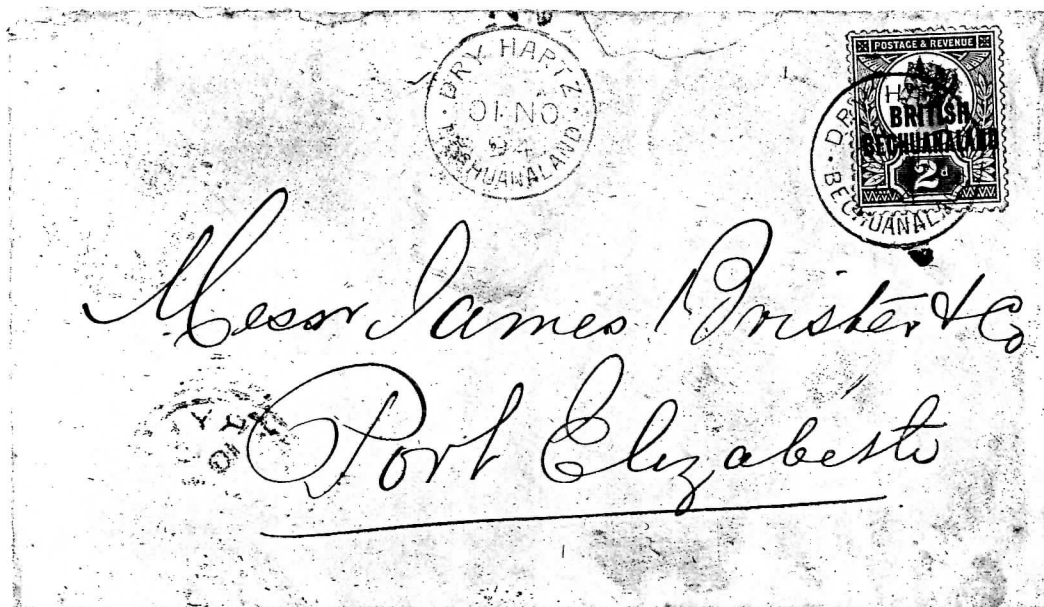 DRY HARTZ
01 NO
94
BECHUANALAND
POSTAGE & REVENUE
BRITISH
BECHUANALAND
2d
BECHUANALAND
Messr James Brister & Co
Port Elizabeth